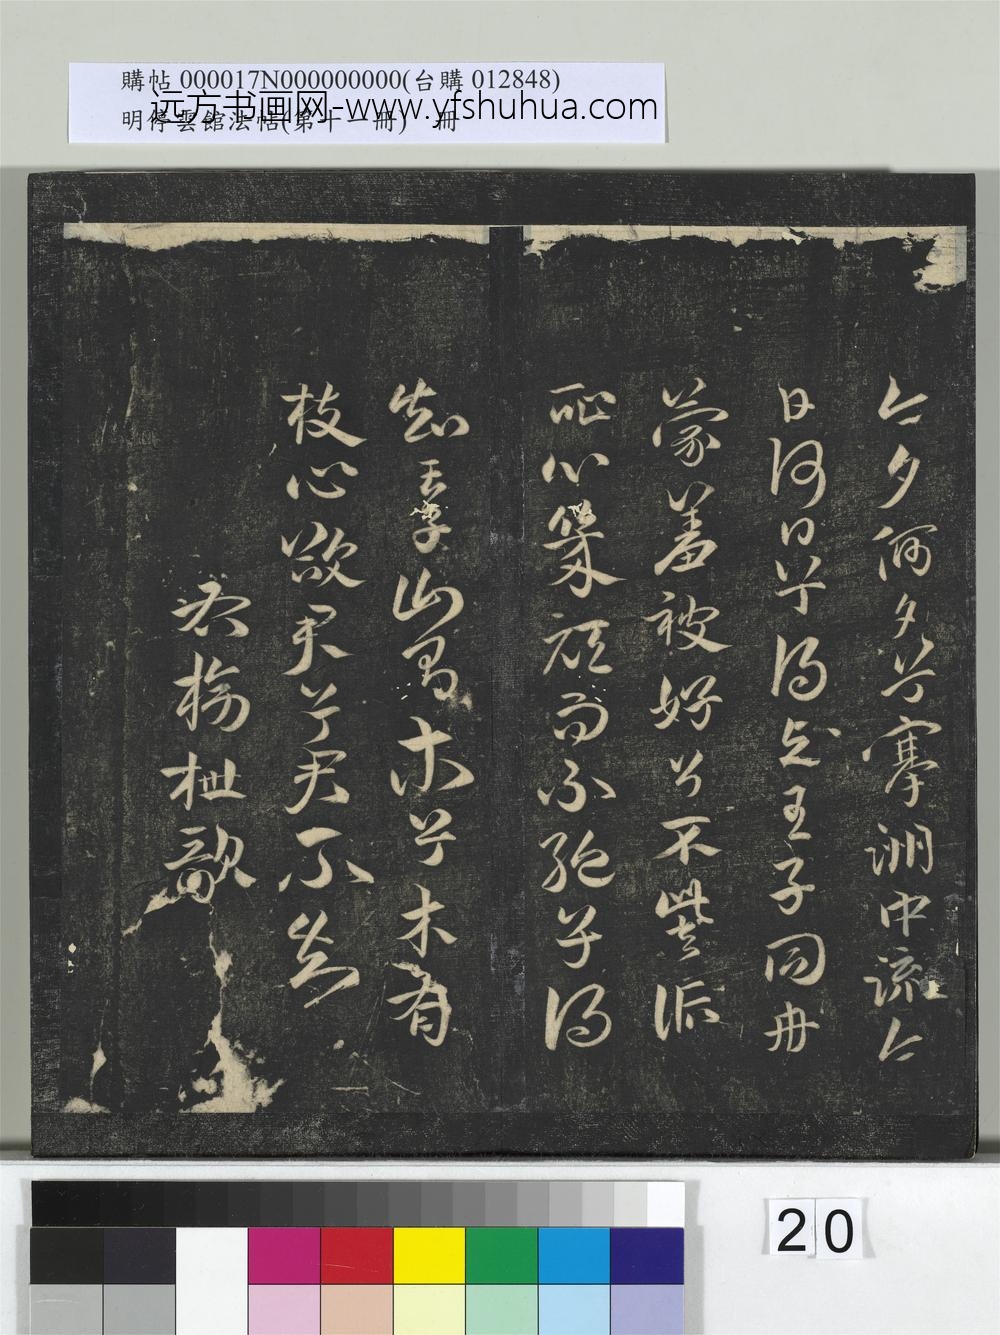 購帖 000017N000000000(台購 012848)
明停雲館法帖(第十一冊) 冊
远方书画网-www.yfshuhua.com
今夕何夕兮搴洲中流今
日何日兮得與王子同舟
蒙羞被好兮不訾詬
恥心幾頑而不絕兮得
知王子山有木兮木有
枝心説君兮君不知
右榜枻歌
20